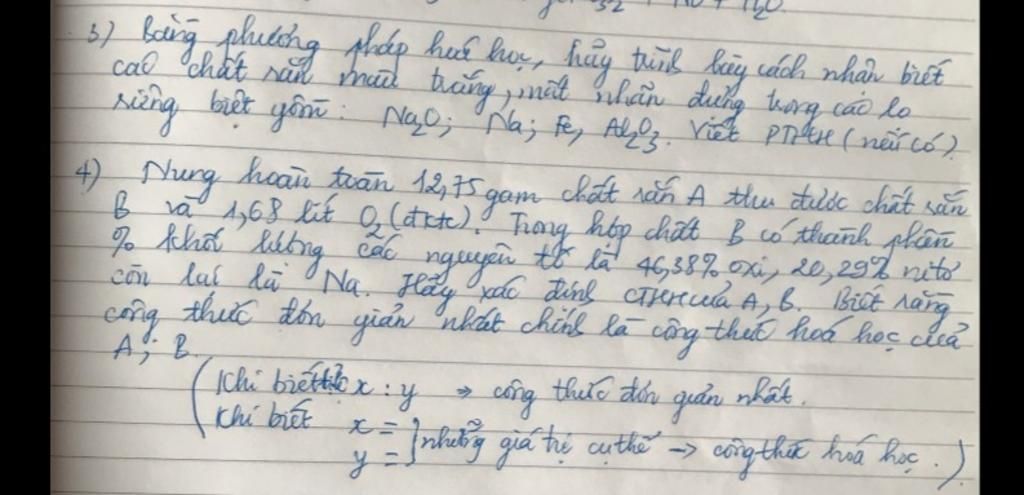 3) Bằng phương pháp hoá học, hãy trình bày cách nhận biết
các chất rắn màu trắng, mất nhãn đựng trong các lọ
riêng biệt gồm: Na₂O; Na; Fe, Al₂O₃. Viết PTHH (nếu có).
4) Nung hoàn toàn 12,75 gam chất rắn A thu được chất rắn
B và 1,68 lít O₂ (đktc). Trong hợp chất B có thành phần
% khối lượng các nguyên tố là 46,38% oxi, 20,29% nitơ
còn lại là Na. Hãy xác định CTHH của A, B. Biết rằng
công thức đơn giản nhất chính là công thức hoá học của
A; B.
(Khi biết x : y → công thức đơn giản nhất.
Khi biết x = } những giá trị cụ thể → công thức hoá học.)
y =